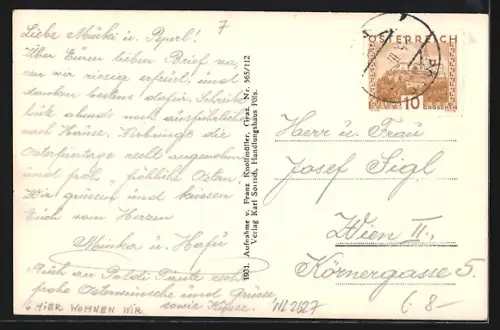 Liebe Mucki u. Peperl!
7
Über Euren lieben Brief wa-
ren wir riesig erfreut, und
danken bestens dafür. Schreibe
heute abends noch ausführlich
nach Hause. Verbringt die
Osterfeiertage recht angenehm
und
"fröhliche Ostern"
Wir grüßen und küssen
Euch vom Herzen
Minka u. Hafü
Auch an Poldi Tante recht
frohe Osterwünsche und Grüsse
sowie Küsse.
+ HIER WOHNEN WIR
1931. Aufnahme v. Franz Knollmüller, Graz. Nr. 565/112
Verlag Karl Sottsch, Handlungshaus Pöls.
ÖSTERREICH
10
GROSCHEN
Herr u. Frau
Josef Sigl
Wien II.,
Körnergasse 5.
NL2627
(8-